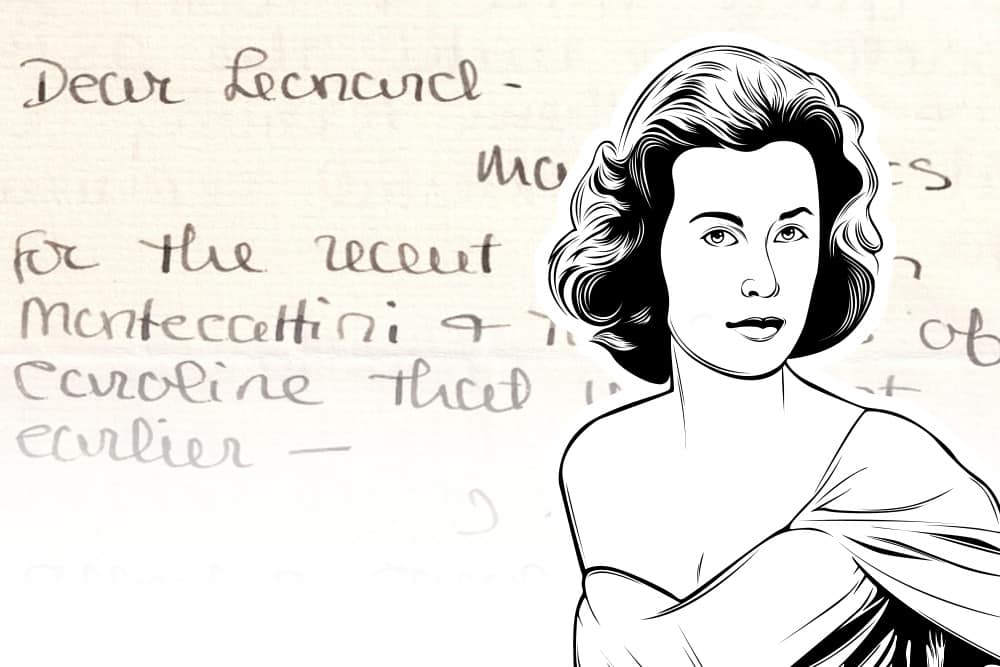 Dear Leonard -
for the recent
Montecattini + of
Caroline that
earlier —